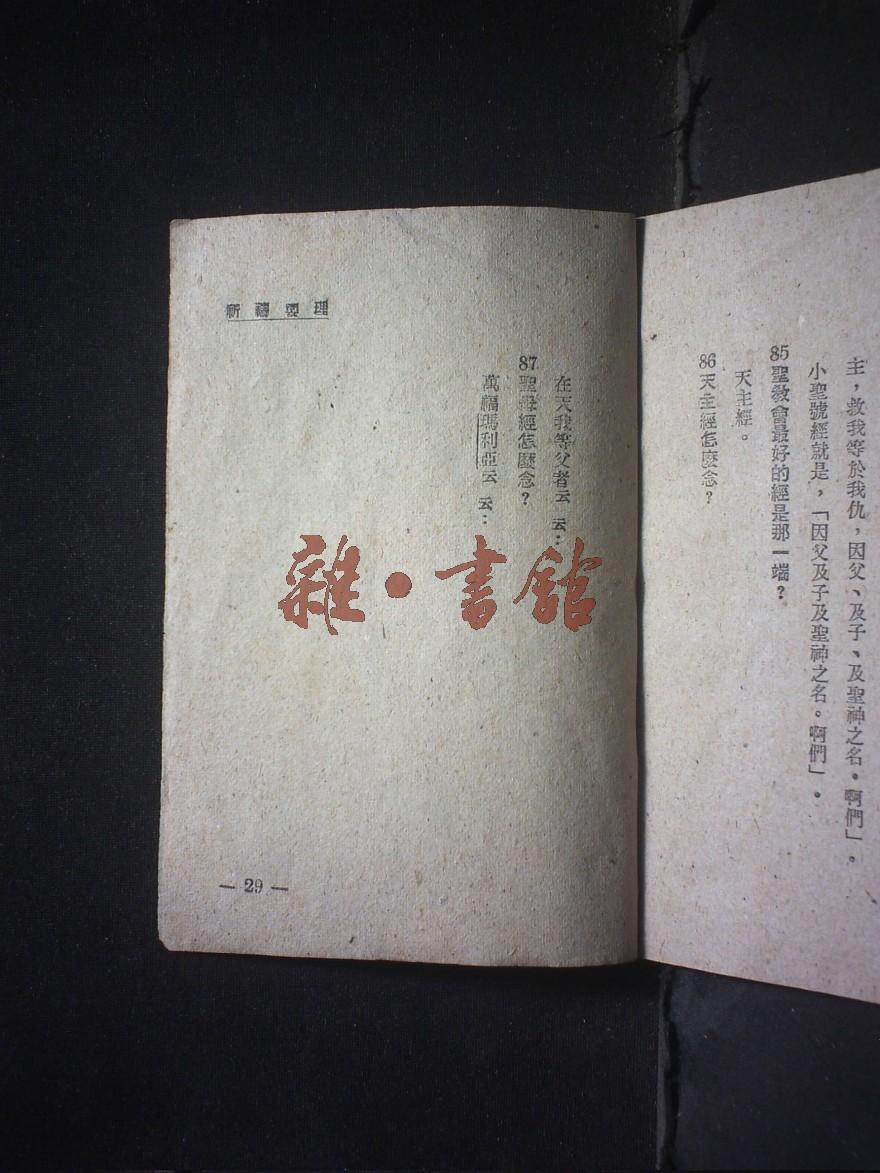 主，救我等於我仇，因父、及子、及聖神之名。啊們」。
小聖號經就是，「因父及子及聖神之名。啊們」。
85聖教會最好的經是那一端？
天主經。
86天主經怎麼念？
在天我等父者云　云：
87聖母經怎麼念？
萬福瑪利亞云　云：
新禱要理
— 29 —
雜・書館